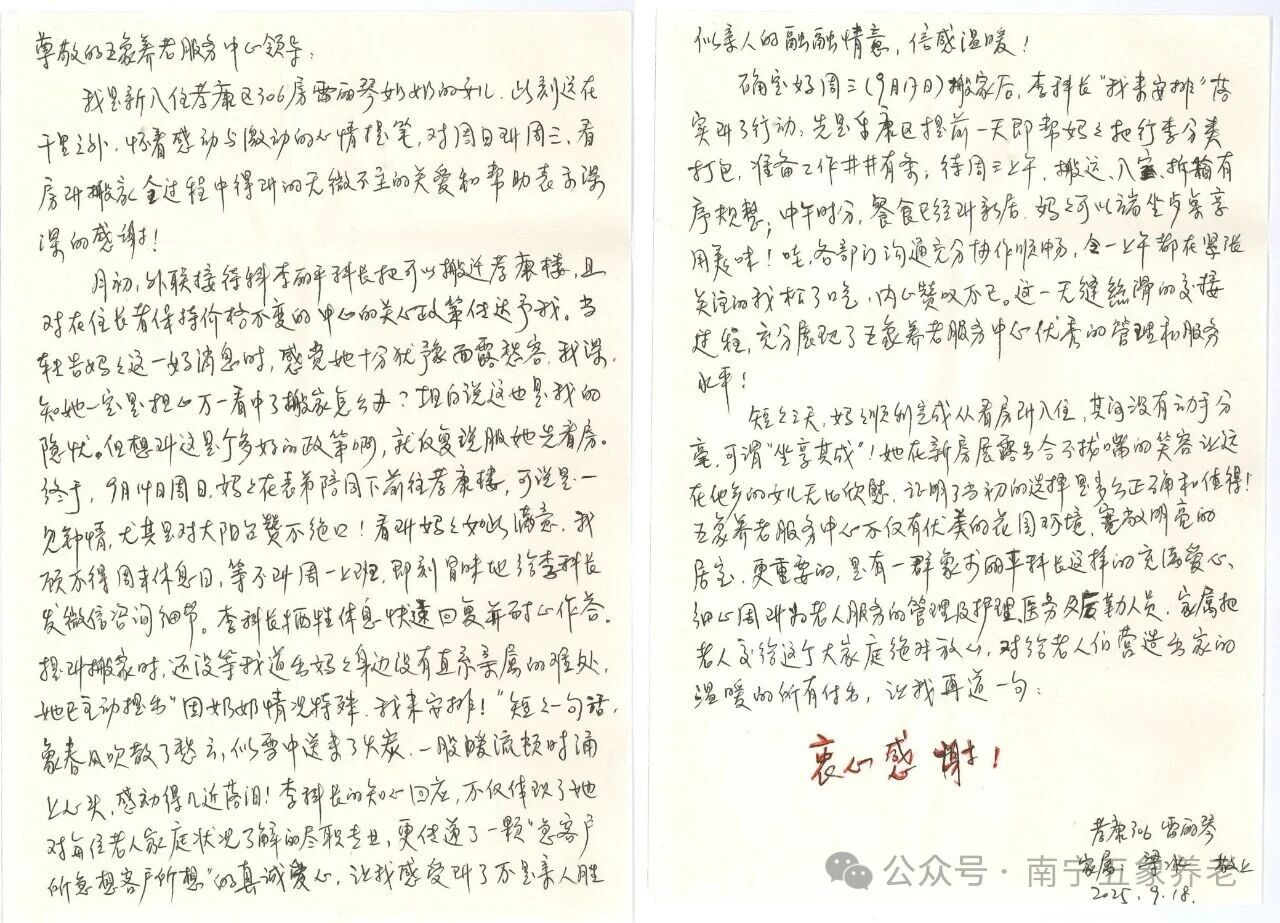 尊敬的五象养老服务中心领导：
我是新入住孝康区306房雷丽琴奶奶的女儿，此刻远在
千里之外，怀着感动与激动的心情提笔，对周日到周三，看
房到搬家全过程中得到的无微不至的关爱和帮助表示深
深的感谢！
月初，外联接待科李丽平科长把可以搬迁孝康楼，且
对在住长者保持价格不变的中心的关心政策传达予我。当
转告妈妈这一好消息时，感觉她十分犹豫面露愁容，我深
知她一定是担心万一看中了搬家怎么办？坦白说这也是我的
隐忧。但想到这是个多好的政策啊，就反复说服她先看房。
终于，9月14日周日，妈妈在表弟陪同下前往孝康楼，可说是一
见钟情，尤其是对大阳台赞不绝口！看到妈妈如此满意，我
顾不得周末休息日，等不到周一上班，即刻冒昧地给李科长
发微信咨询细节。李科长牺牲休息快速回复并耐心作答。
提到搬家时，还没等我道出妈妈身边没有直系亲属的难处，
她已主动提出“因奶奶情况特殊，我来安排！”短短一句话，
象春风吹散了愁云，似雪中送来了火炭，一股暖流顿时涌
上心头，感动得几近落泪！李科长的知心回应，不仅体现了她
对每位老人家庭状况了解的尽职专业，更传递了一颗“急客户
所急想客户所想”的真诚爱心，让我感受到了不是亲人胜
似亲人的融融情意，倍感温暖！
确定好周三（9月17日）搬家后，李科长“我来安排”落
实到了行动：先是康区提前一天即帮妈妈把行李分类
打包，准备工作井井有条；待周三上午，搬运、入室、拆箱有
序规整；中午时分，餐食已经到新居，妈妈可以端坐桌享
用美味！哇，各部门沟通充分协作顺畅，令一上午都在紧张
关注的我松了口气，内心赞叹不已。这一无缝丝滑的交接
过程，充分展现了五象养老服务中心优秀的管理和服务
水平！
短短三天，妈妈顺利完成从看房到入住，其间没有动手分
毫，可谓“坐享其成”！她在新房展露出合不拢嘴的笑容让远
在他乡的女儿无比欣慰，证明了当初的选择是多么正确和值得！
五象养老服务中心不仅有优美的花园环境，宽敞明亮的
居室，更重要的，是有一群象李丽平科长这样的充满爱心、
细心周到为老人服务的管理及护理、医务及后勤人员，家属把
老人交给这个大家庭绝对放心，对给老人们营造出家的
温暖的所有付出，让我再道一句：
衷心感谢！
孝康306 雷丽琴
家属：梁 敬上
2025.9.18.
公众号 · 南宁五象养老